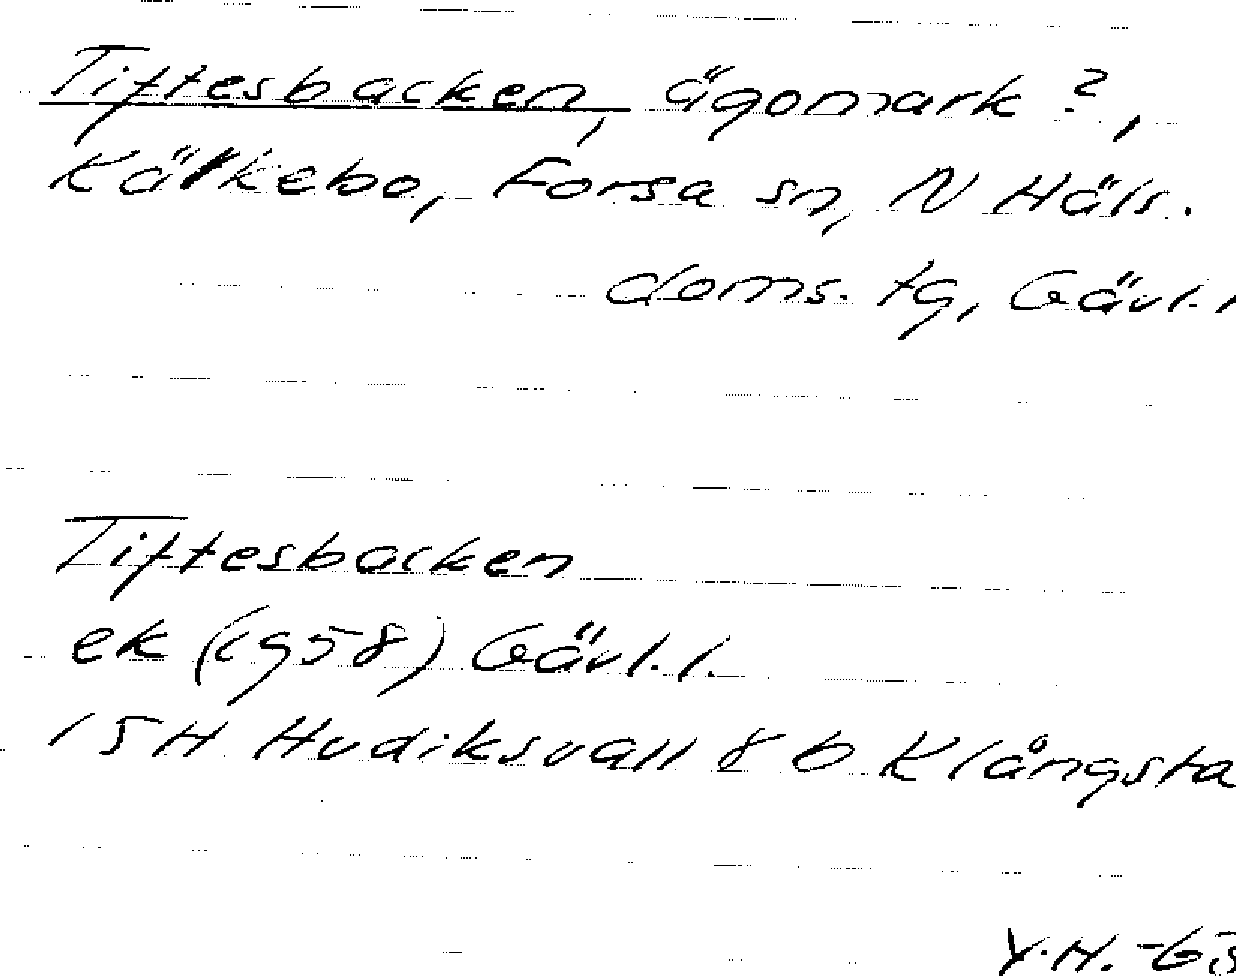 Tiftesbacken, ägomark?,
Kälkebo, Forsa sn, N Häls.
doms. tg, Gävl.l
Tiftesbacken
ek (1958) Gävl.l.
15H Hudiksvall 8 b Klångsta
Y.H. -63